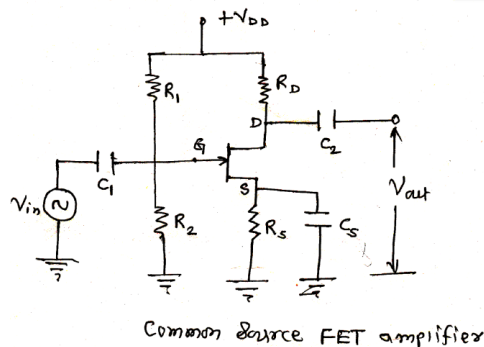 +VDD
R1
RD
D
C2
G
C1
Vin
S
Vout
R2
RS
CS
Common Source FET amplifier